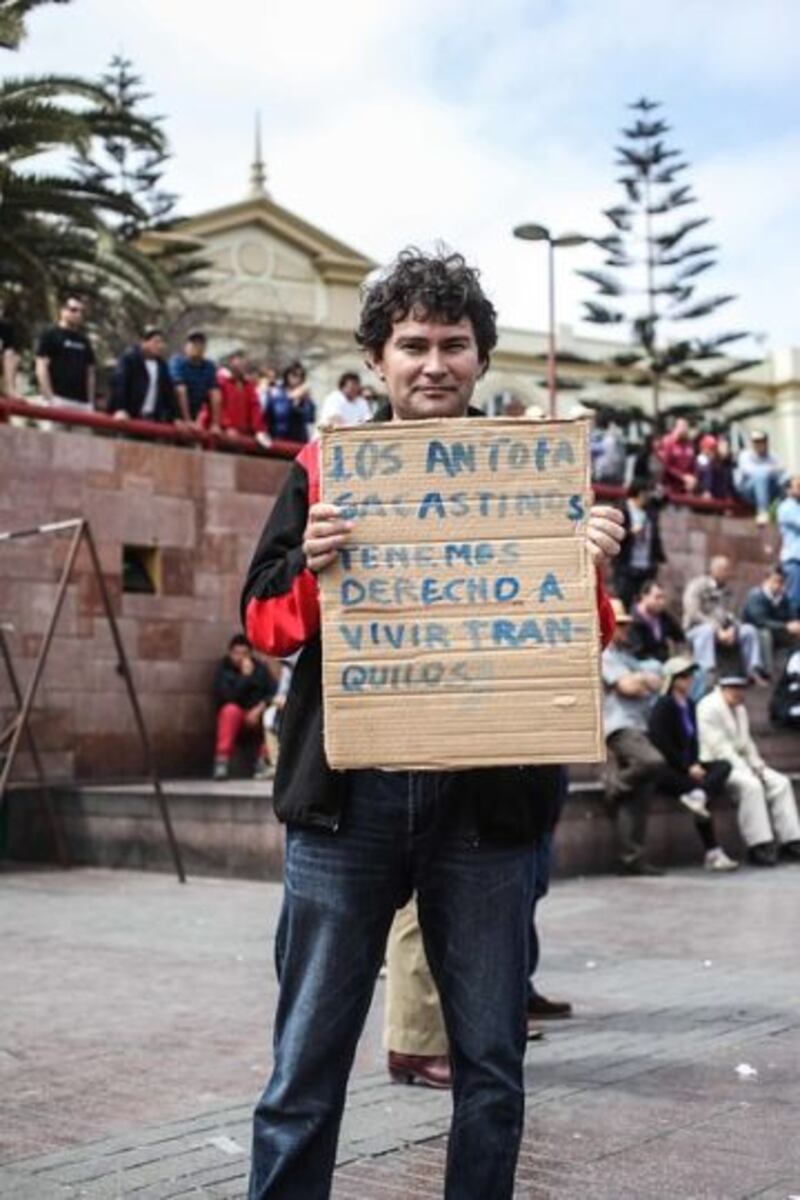 LOS ANTOFA
GACASTINOS
TENEMOS
DERECHO A
VIVIR TRAN-
QUILOS